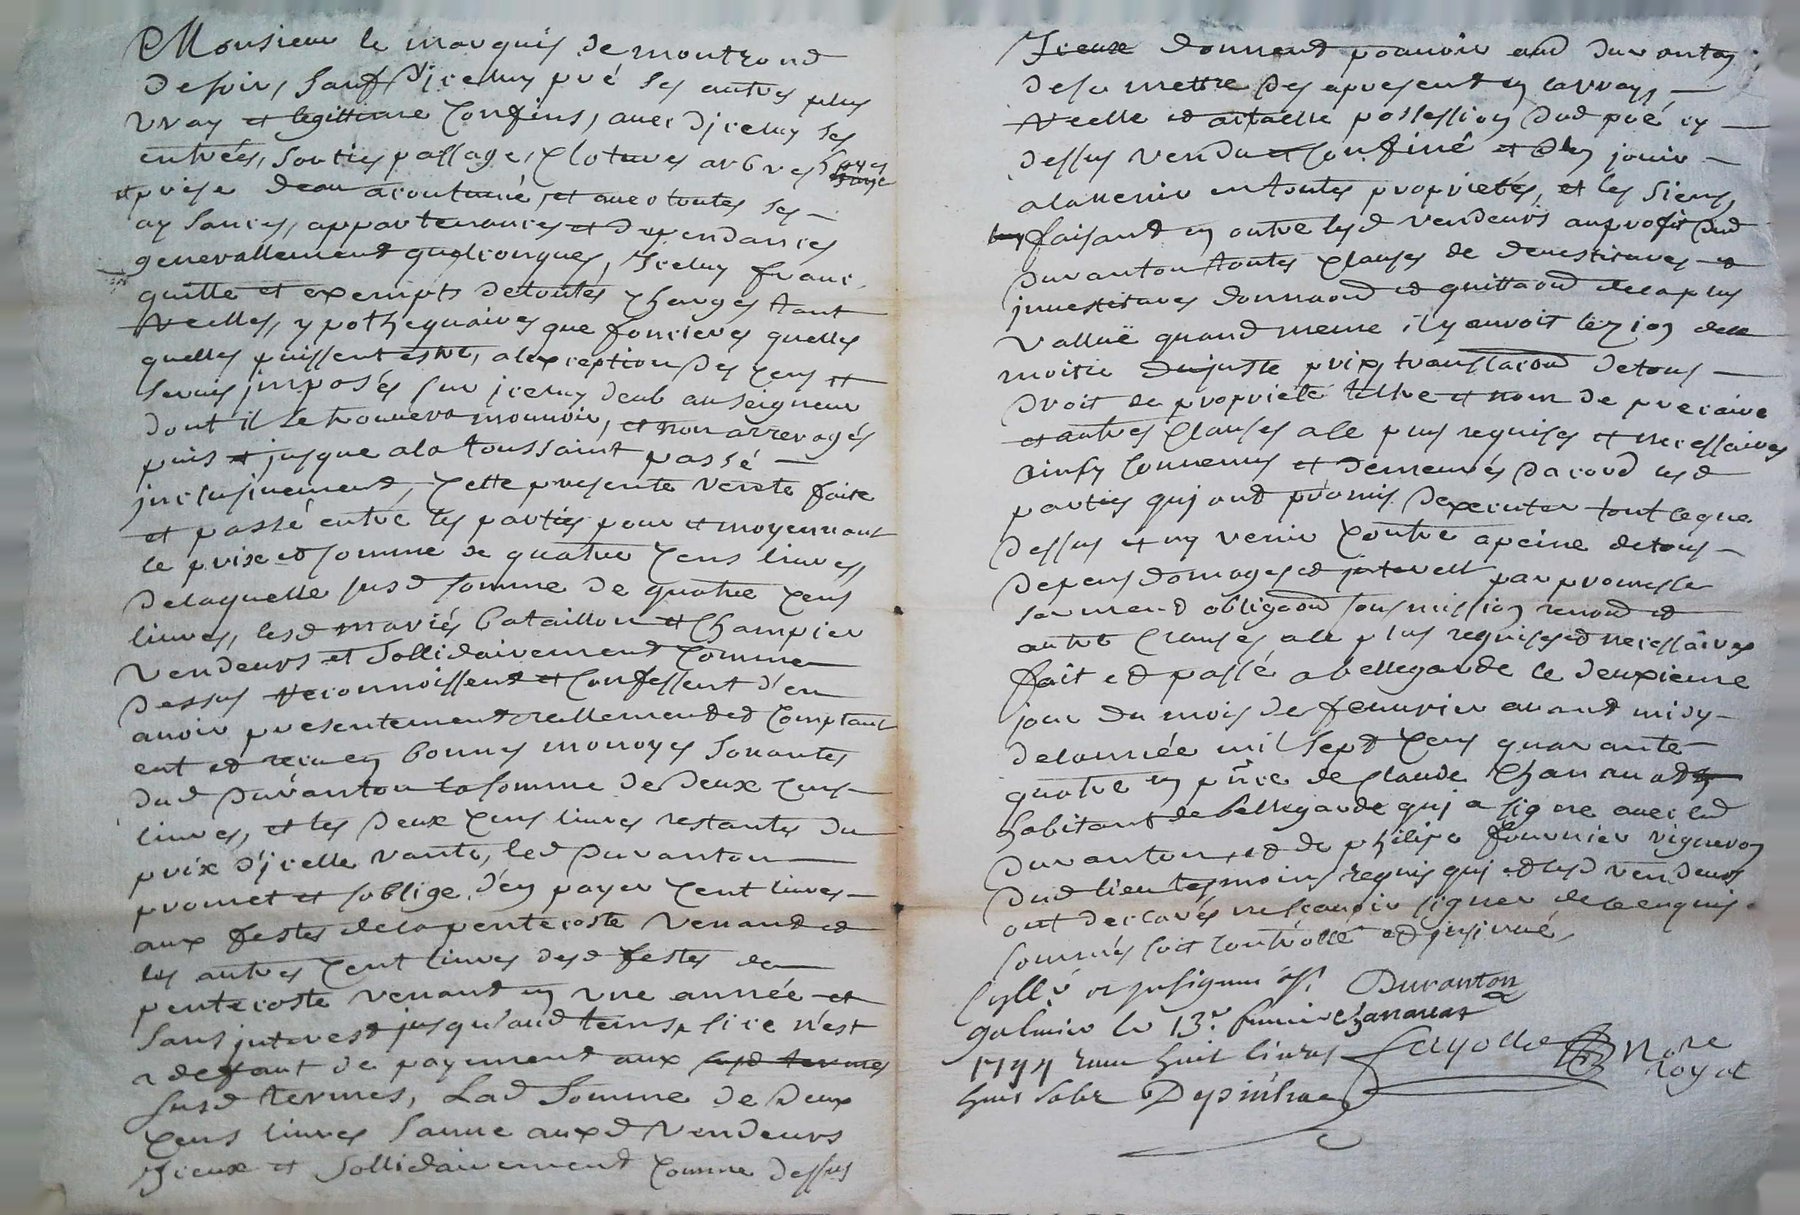 Monsieur le marquis de montrond
de soir, sauf d'jceluy pré ses autres plus
vray et legittime Confins, avec d'jceluy ses
entrées, sorties passage, Clotures arbres hayes
et prise deau acoutumé, et avec toutes ses
aysances, appartenances et dependances
generallement quelconques, Jceluy franc
quitte et exempts detoutes Charges tant
reelles, ypothequaires que foncieres quelles
quelles puissent estre, alexception des Cens et
servis jmposés sur jceluy deub auseigneur
dont il se trouvera mouvoir, et non arreragés
puis et jusque ala toussaint passé
jnclusivement, Cette presente vente faite
et passé entre les parties pour et moyennant
le prix et somme de quatre Cens livres,
delaquelle susd somme de quatre Cens
livres, lesd mariés bataillon et Champier
vendeurs et sollidairement Comme
dessus reconnoissent et Confessent d'en
avoir presentement reellement et Comptant
eut et receu en bonnes monoyes sonantes
dud Duranton la somme de deux Cens
livres, et les deux Cens livres restantes du
prix d'jcelle vante, led Duranton
promet et soblige d'en payer Cent livres
aux festes delapentecoste venant et
les autres Cent livres desd festes de
pentecoste venant en une année et
sans jnterest jusqu'aud temps, si ce n'est
a deffaut de payement aux susd termes
susd termes, Lad somme de deux
Cens livres sauve auxd vendeurs
Jceux et sollidairement Comme dessus
Jceux donnent pouvoir aud duranton
dese mettre des apresent en lavraye,
reelle et actuelle possession dud pré cy
dessus vendu et Confiné et den jouir
alavenir entoutes proprietés, et les siens,
faisant en outre lesd vendeurs auprofit dud
duranton toutes Clauses de devestitures et
jnvestitures donnaond et quittaond delaplus
valluë quand meme il y auroit lezion dela
moitié dujuste prix, translaond detous
droit de proprieté tiltre et nom de precaire
et autres Clauses ale plus requises et necessaires
ainsy Convenus et demeurés dacord lesd
parties qui ont promis dexecuter tout ceque
dessus et ny venir Contre apeine detous
depens domages et jnterest par promesse
serment obligaond sousmission renond et
autre Clauses ale plus requises et necessaires
fait et passé abellegarde le deuxieme
jour du mois de fevvrier avant midy
delannée mil sept Cens quarante
quatre en pnce de Claude Chanavat
habitant de bellegarde qui a signe avec led
duranton, et de philipe fournier vigneron
dud lieu tesmoins requis qui et lesd vendeurs
ont declarés ne scavoir signer dece enquis
sommés soit Controllé et jnsinué,
Cllé et jnsignué à St.
galmier le 13e. fevrier
1744 receu huit livres
huit sols Depinhac
Duranton
Chanavat
Fayolle Nore
royal